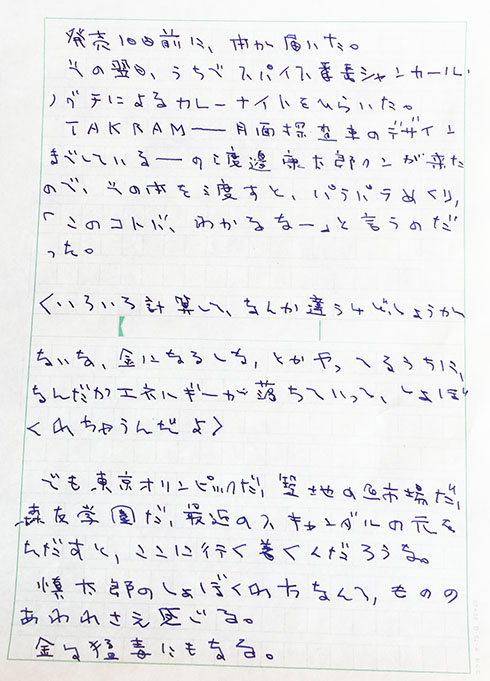 発売10日前に、本が届いた。
その翌日、うちでスパイス番長シャンカール・
ノグチによるカレーナイトをひらいた。
TAKRAM——月面探査車のデザイン
までしている——の渡邉康太郎クンが来た
ので、その本を渡すと、パラパラめくり、
「このコトバ、わかるなー」と言うのだ
った。
〈いろいろ計算して、なんか違うケド、しょうが
ないな、金になるしな、とかやってるうちに、
なんだかエネルギーが落ちていって、しょぼ
くれちゃうんだよ〉
でも東京オリンピックだ、築地の魚市場だ、
森友学園だ、最近のスキャンダルの元を
ただすと、ここに行く着くんだろうな。
慎太郎のしょぼくれ方なんて、ものの
あわれさえ感じる。
金は猛毒にもなる。